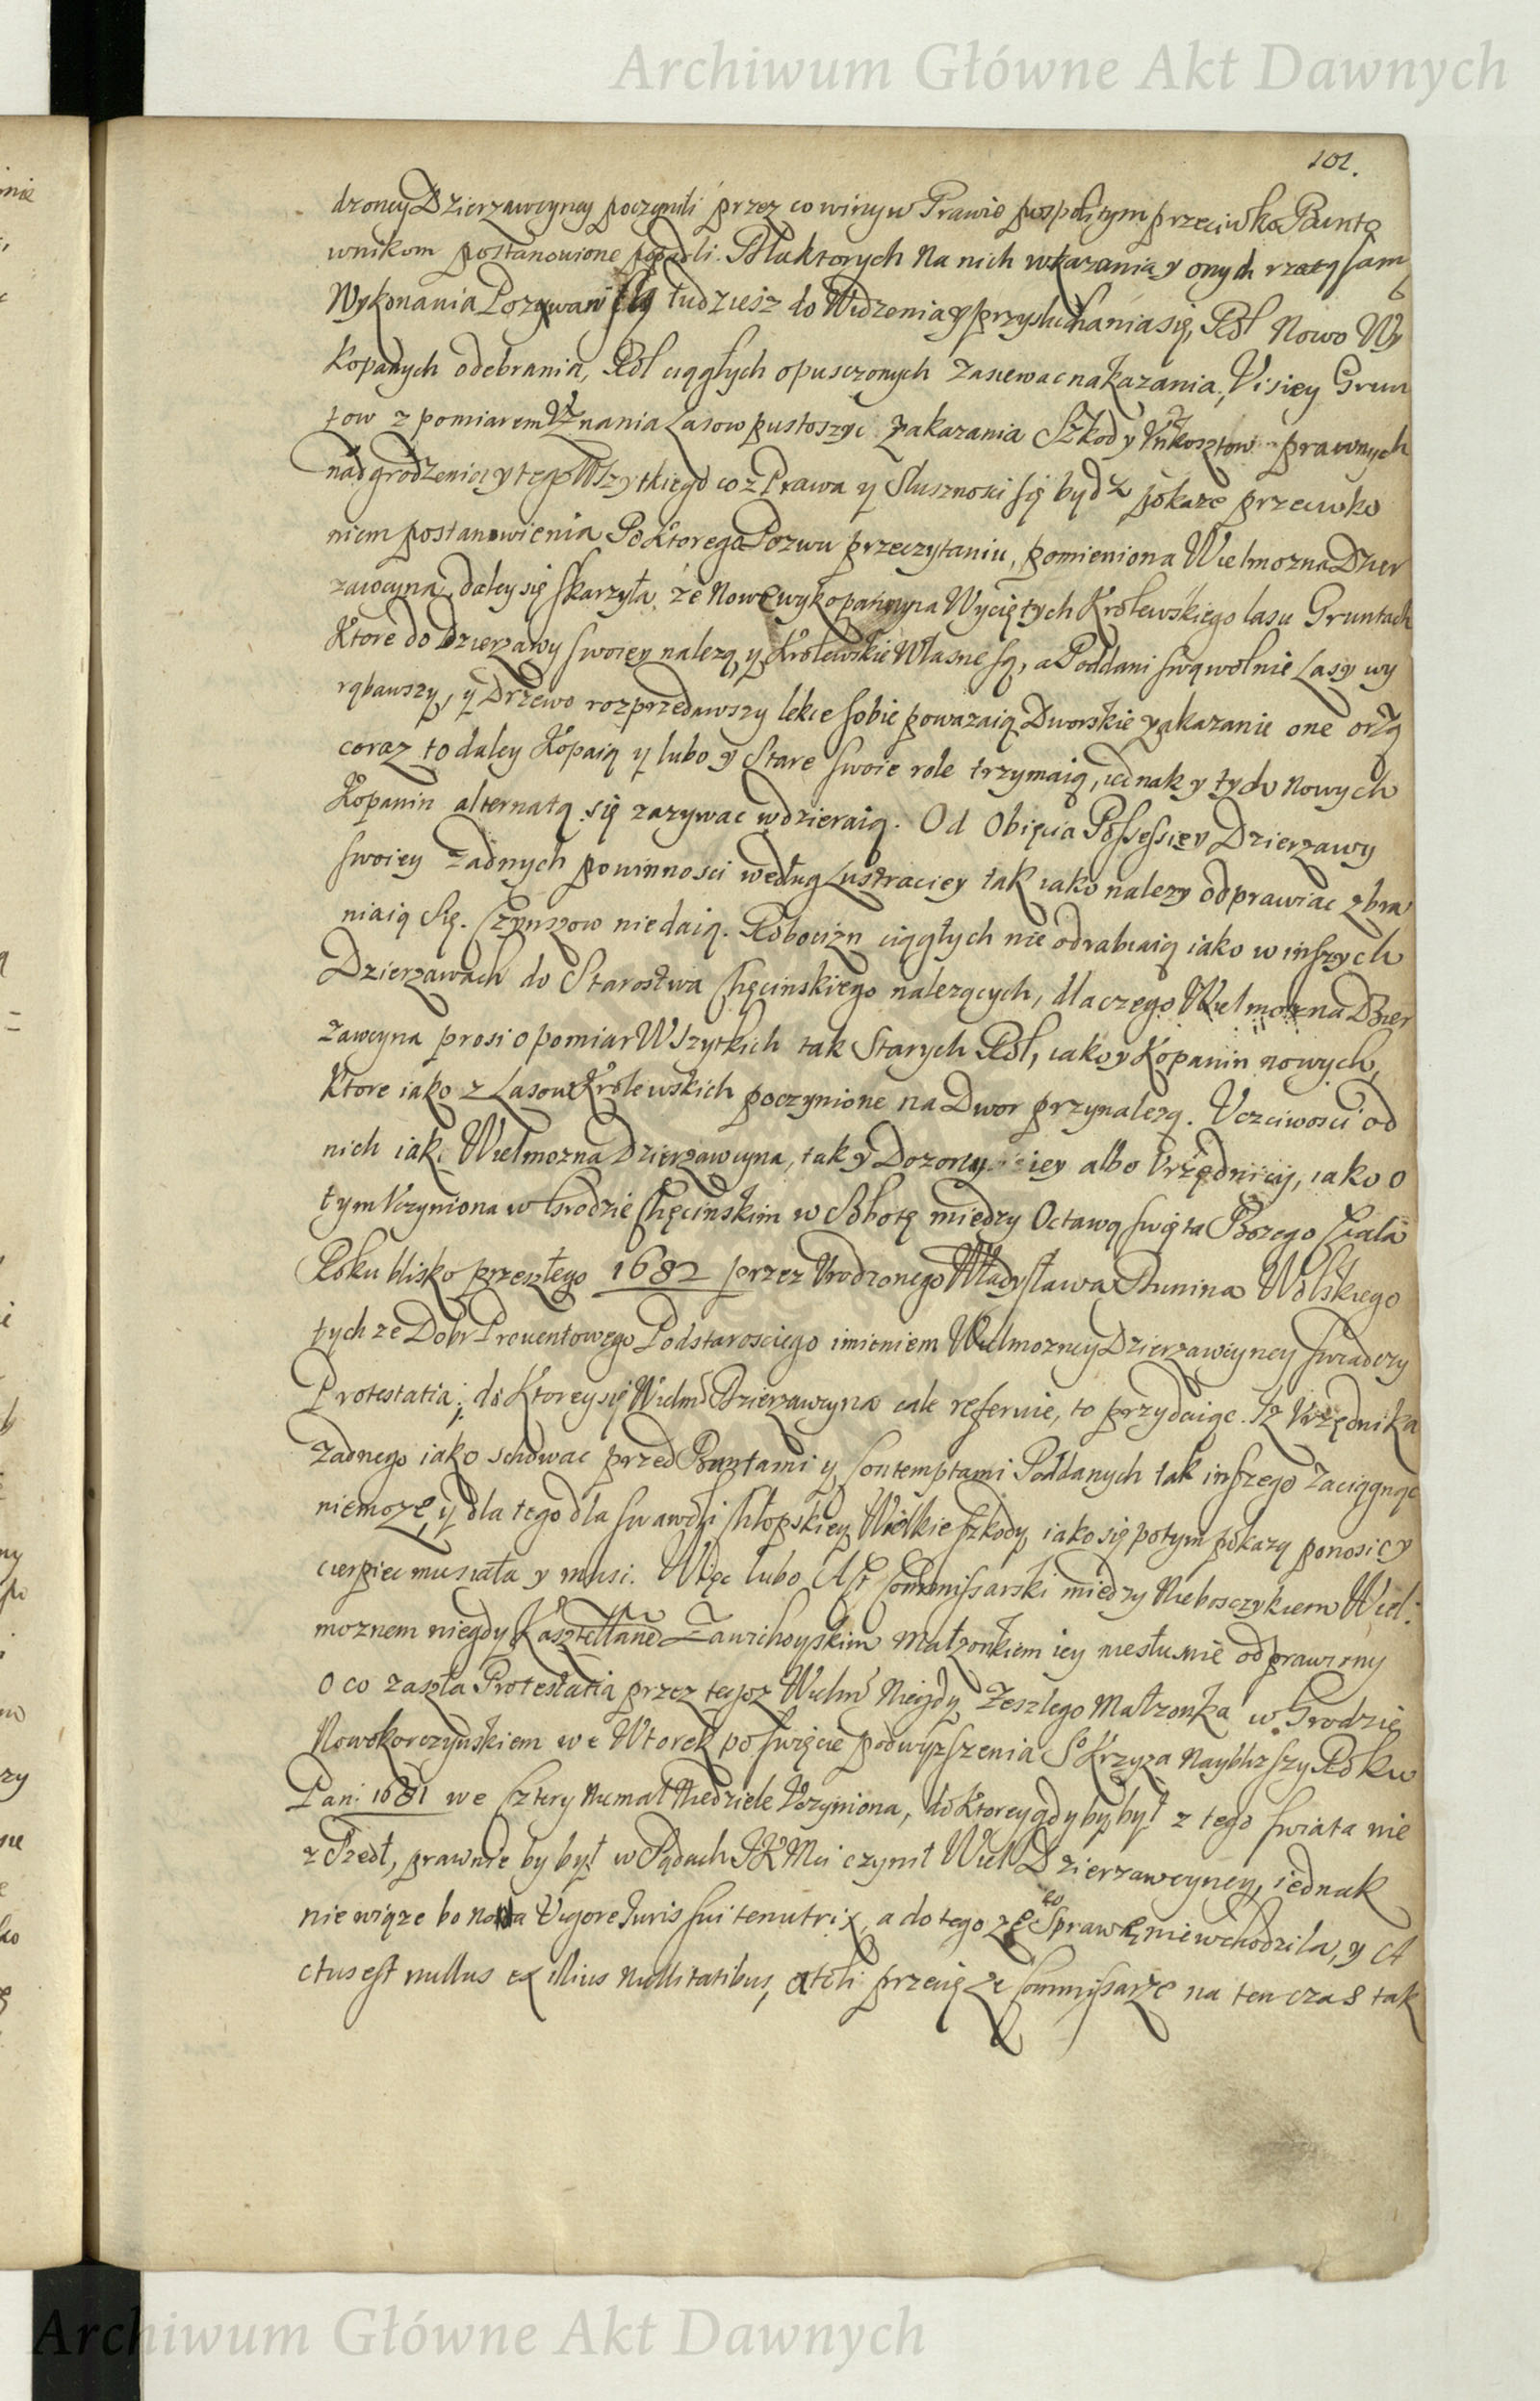 Archiwum Główne Akt Dawnych
101.
dzoney Dzierzawcyney poczynili przez co winy w Prawie pospolitym przeciwko Bunto
wnikom postanowione popadli. Dla ktorych na nich wkazania y onych rzeczą samą
Wykonania Pozywani są tudziesz do Widzenia y przysłuchania się, Rol Nowo Wy
kopanych odebrania, Rol ciągłych opusczonych zasiewac nakazania, Visiey Grun
tow z pomiarem Uznania Lasow pustoszyc zakazania Szkod y Unkosztow prawnych
nadgrodzenia y tego Wszytkiego co z Prawa y Słusznosci się bydz pokaze przeciwko
niem postanowienia Po ktorego Pozwu przeczytaniu, pomieniona Wielmozna Dzier
zawcyna daley się skarzyła, że Nowe wykopaniny na Wyciętych Krolewskiego lasu Gruntach
Ktore do Dzierzawy swoiey nalezą, y Krolewskie Własne są, a Poddani swąwolnie Lasy wy
rąbawszy, y Drzewo rozprzedawszy lekce sobie powazaią Dworskie zakazanie one orzą
coraz to daley Kopaią y lubo y Stare swoie role trzymaią, iednak y tych Nowych
Kopanin alternatą się zazywac wdzieraią. Od Obięcia Possessiey Dzierzawy
swoiey żadnych powinnosci według Lustraciey tak iako nalezy odprawiac zbra
niaią Się. Czynszow niedaią. Robocizn ciągłych nie odrabiaią iako w inszych
Dzierzawach do Starostwa Chęcinskiego nalezących, dla czego Wielmozna Dzier
zawcyna prosi o pomiar Wszytkich tak Starych Rol, iako y Kopanin nowych,
Ktore iako z Lasow Krolewskich poczynione na Dwor przynalezą. Uczciwosci od
nich iako Wielmozna Dzierzawcyna, tak y Dozorcy iey albo Urzędnicy, iako o
tym Uczyniona w Grodzie Chęcinskim w Sobotę między Octawą swięta Bozego Ciała
Roku blisko przeszłego 1682 przez Urodzonego Władysława Dunina Wolskiego
tych ze Dobr Prouentowego Podstarosciego imieniem Wielmozney Dzierzawcyney swiadczy
Protestatia; do Ktorey się Wielm Dzierzawcyna cale referuie, to przydaiąc. Iz Urzędnika
zadnego iako schowac przed Buntami y Contemptami Poddanych tak inszego zaciągnąc
niemoze, y dla tego dla swawoli chłopskiey Wielkie szkody iako się potym pokazą ponosic y
cierpiec musiała y musi. Więc lubo Akt Commissarski miedzy Nieboszczykiem Wiel:
moznem niegdy Kasztellanem Zawichoyskim Małzonkiem iey niesłusnie odprawiony
O co zaszła Protestatia przez tegoz Wielm Niegdy Zeszłego Małzonka w Grodzie
Nowokorczynskiem we Wtorek po swięcie podwyzszenia So Krzyza Nayblizszy Roku
Pan: 1681 we Cztery Niemal Niedziele Uczyniona, do Ktorey gdyby był z tego swiata nie
zszedł, prawnie by był w Sądach JKMci czynił Wiel Dzierzawcyney, iednak
nie wiąze bo nova Vigore Iuris sui tenutrix, a do tego ze co Sprawę niewchodziła, y A
ctus est nullus ex illius Nullitatibus, atoli przecię ze Commissarze na ten czas tak
Archiwum Główne Akt Dawnych